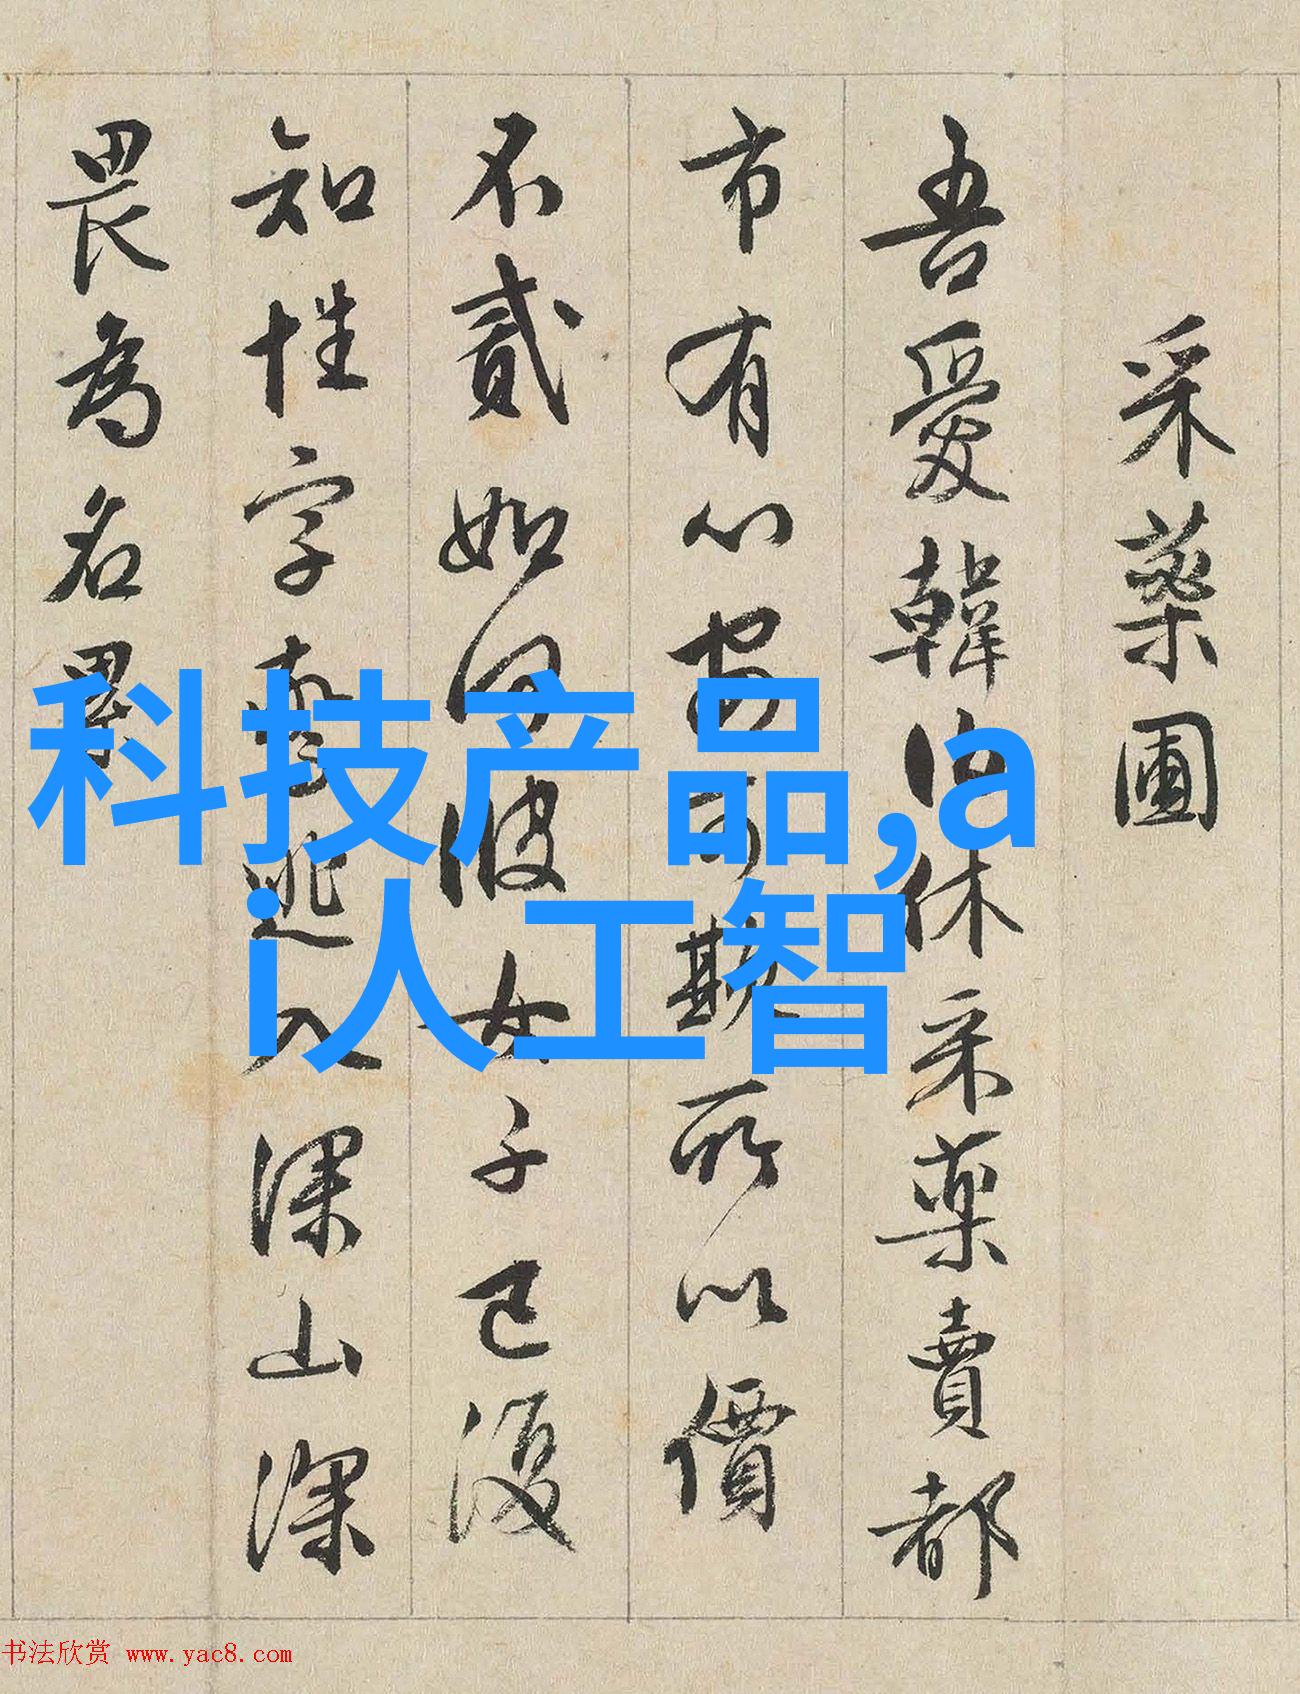 采藥圃
吾愛韓伯休采藥賣都
市有心安可欺所以價
不貳如何彼女子已復
知性字驚逃入深山深
畏為名累
科技产品,a
i人工智
书法欣赏 www.yac8.com